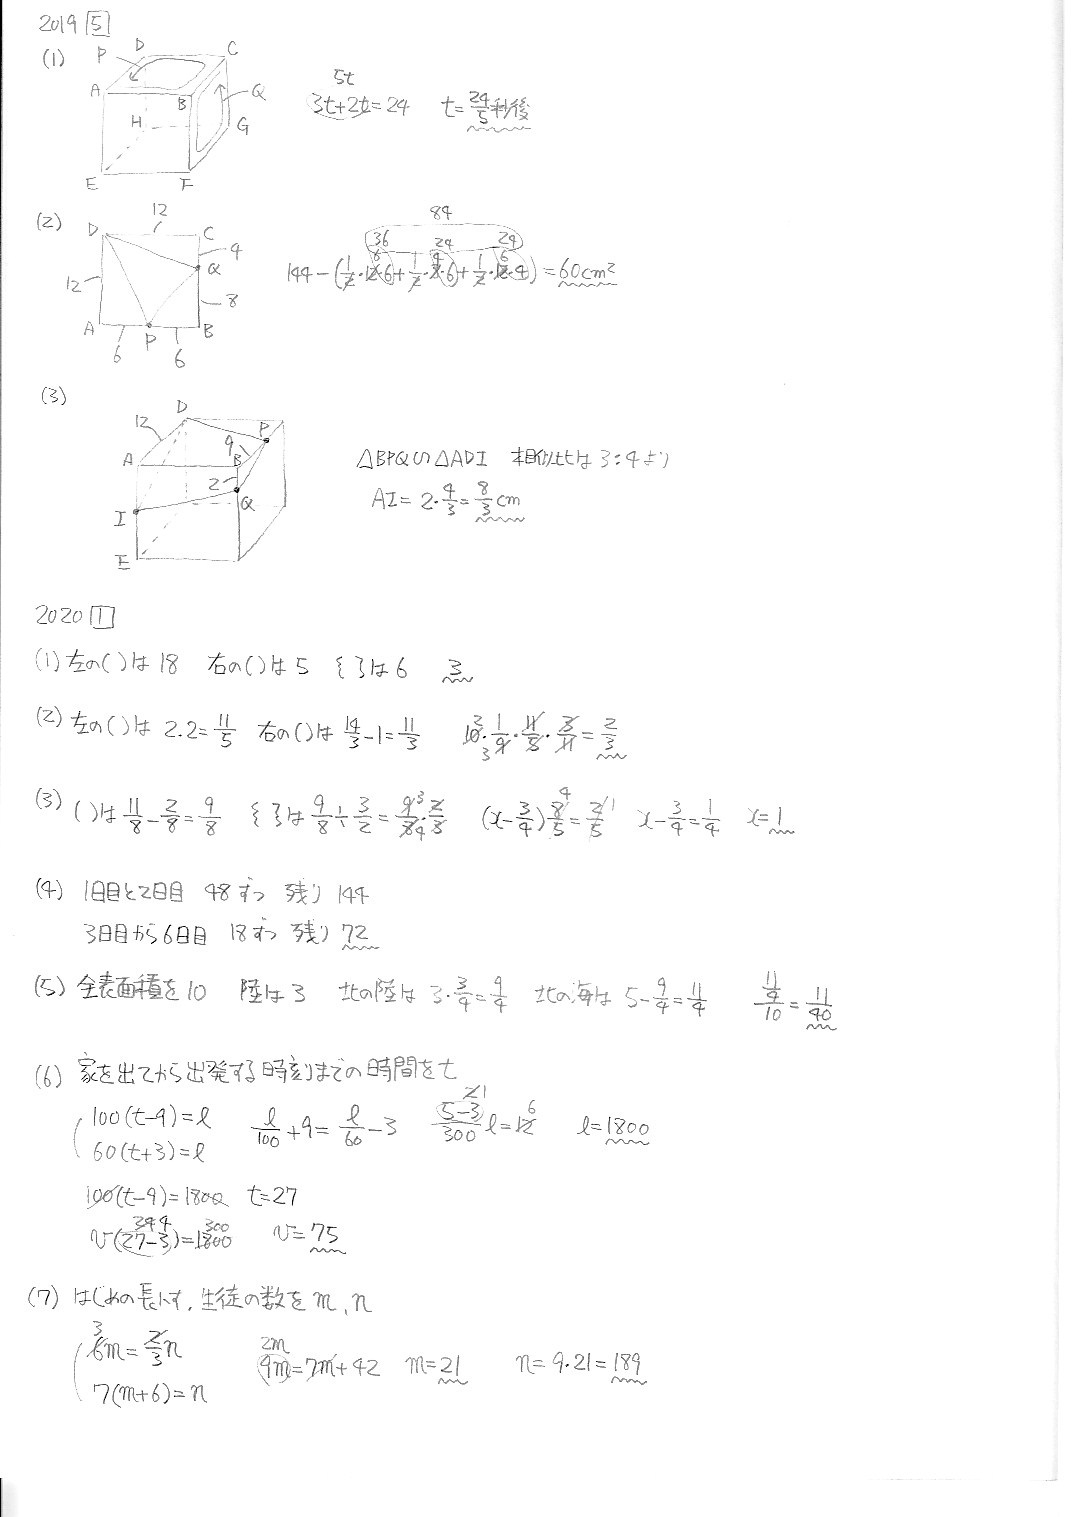 2019 5
(1)
D
P
C
A
B
Q
H
G
E
F
5t
3t+2t=24 t=24/5秒後
(2)
12
D
C
4
Q
12
8
A
P
B
6
6
84
36 24 24
144-(1/2・12・6+1/2・8・6+1/2・12・4)=60cm²
(3)
D
12
P
9
A
B
2
Q
I
E
△BPQ∽△ADI 相似比は3:4より
AI=2・4/3=8/3cm
2020 1
(1) 左の()は18 右の()は5 { }は6 3
(2) 左の()は 2.2=11/5 右の()は 14/3-1=11/3 10・1/9・11/5・3/11=2/3
(3) ()は 11/8-2/8=9/8 { }は 9/8÷3/2=9/8・2/3 (x-3/4)8/5=2/5 x-3/4=1/4 x=1
(4) 1日目と2日目 48ずつ 残り144
3日目から6日目 18ずつ 残り72
(5) 全表面積を10 陸は3 北の陸は 3・3/4=9/4 北の海は 5-9/4=11/4 11/4/10=11/40
(6) 家を出てから出発する時刻までの時間をt
100(t-9)=l l/100+9=l/60-3 5-3/300 l=12 l=1800
60(t+3)=l
100(t-9)=1800 t=27
v(27-3)=1800 v=75
(7) はじめの長いす,生徒の数をm,n
6m=2/3n 9m=7m+42 m=21 n=9・21=189
7(m+6)=n